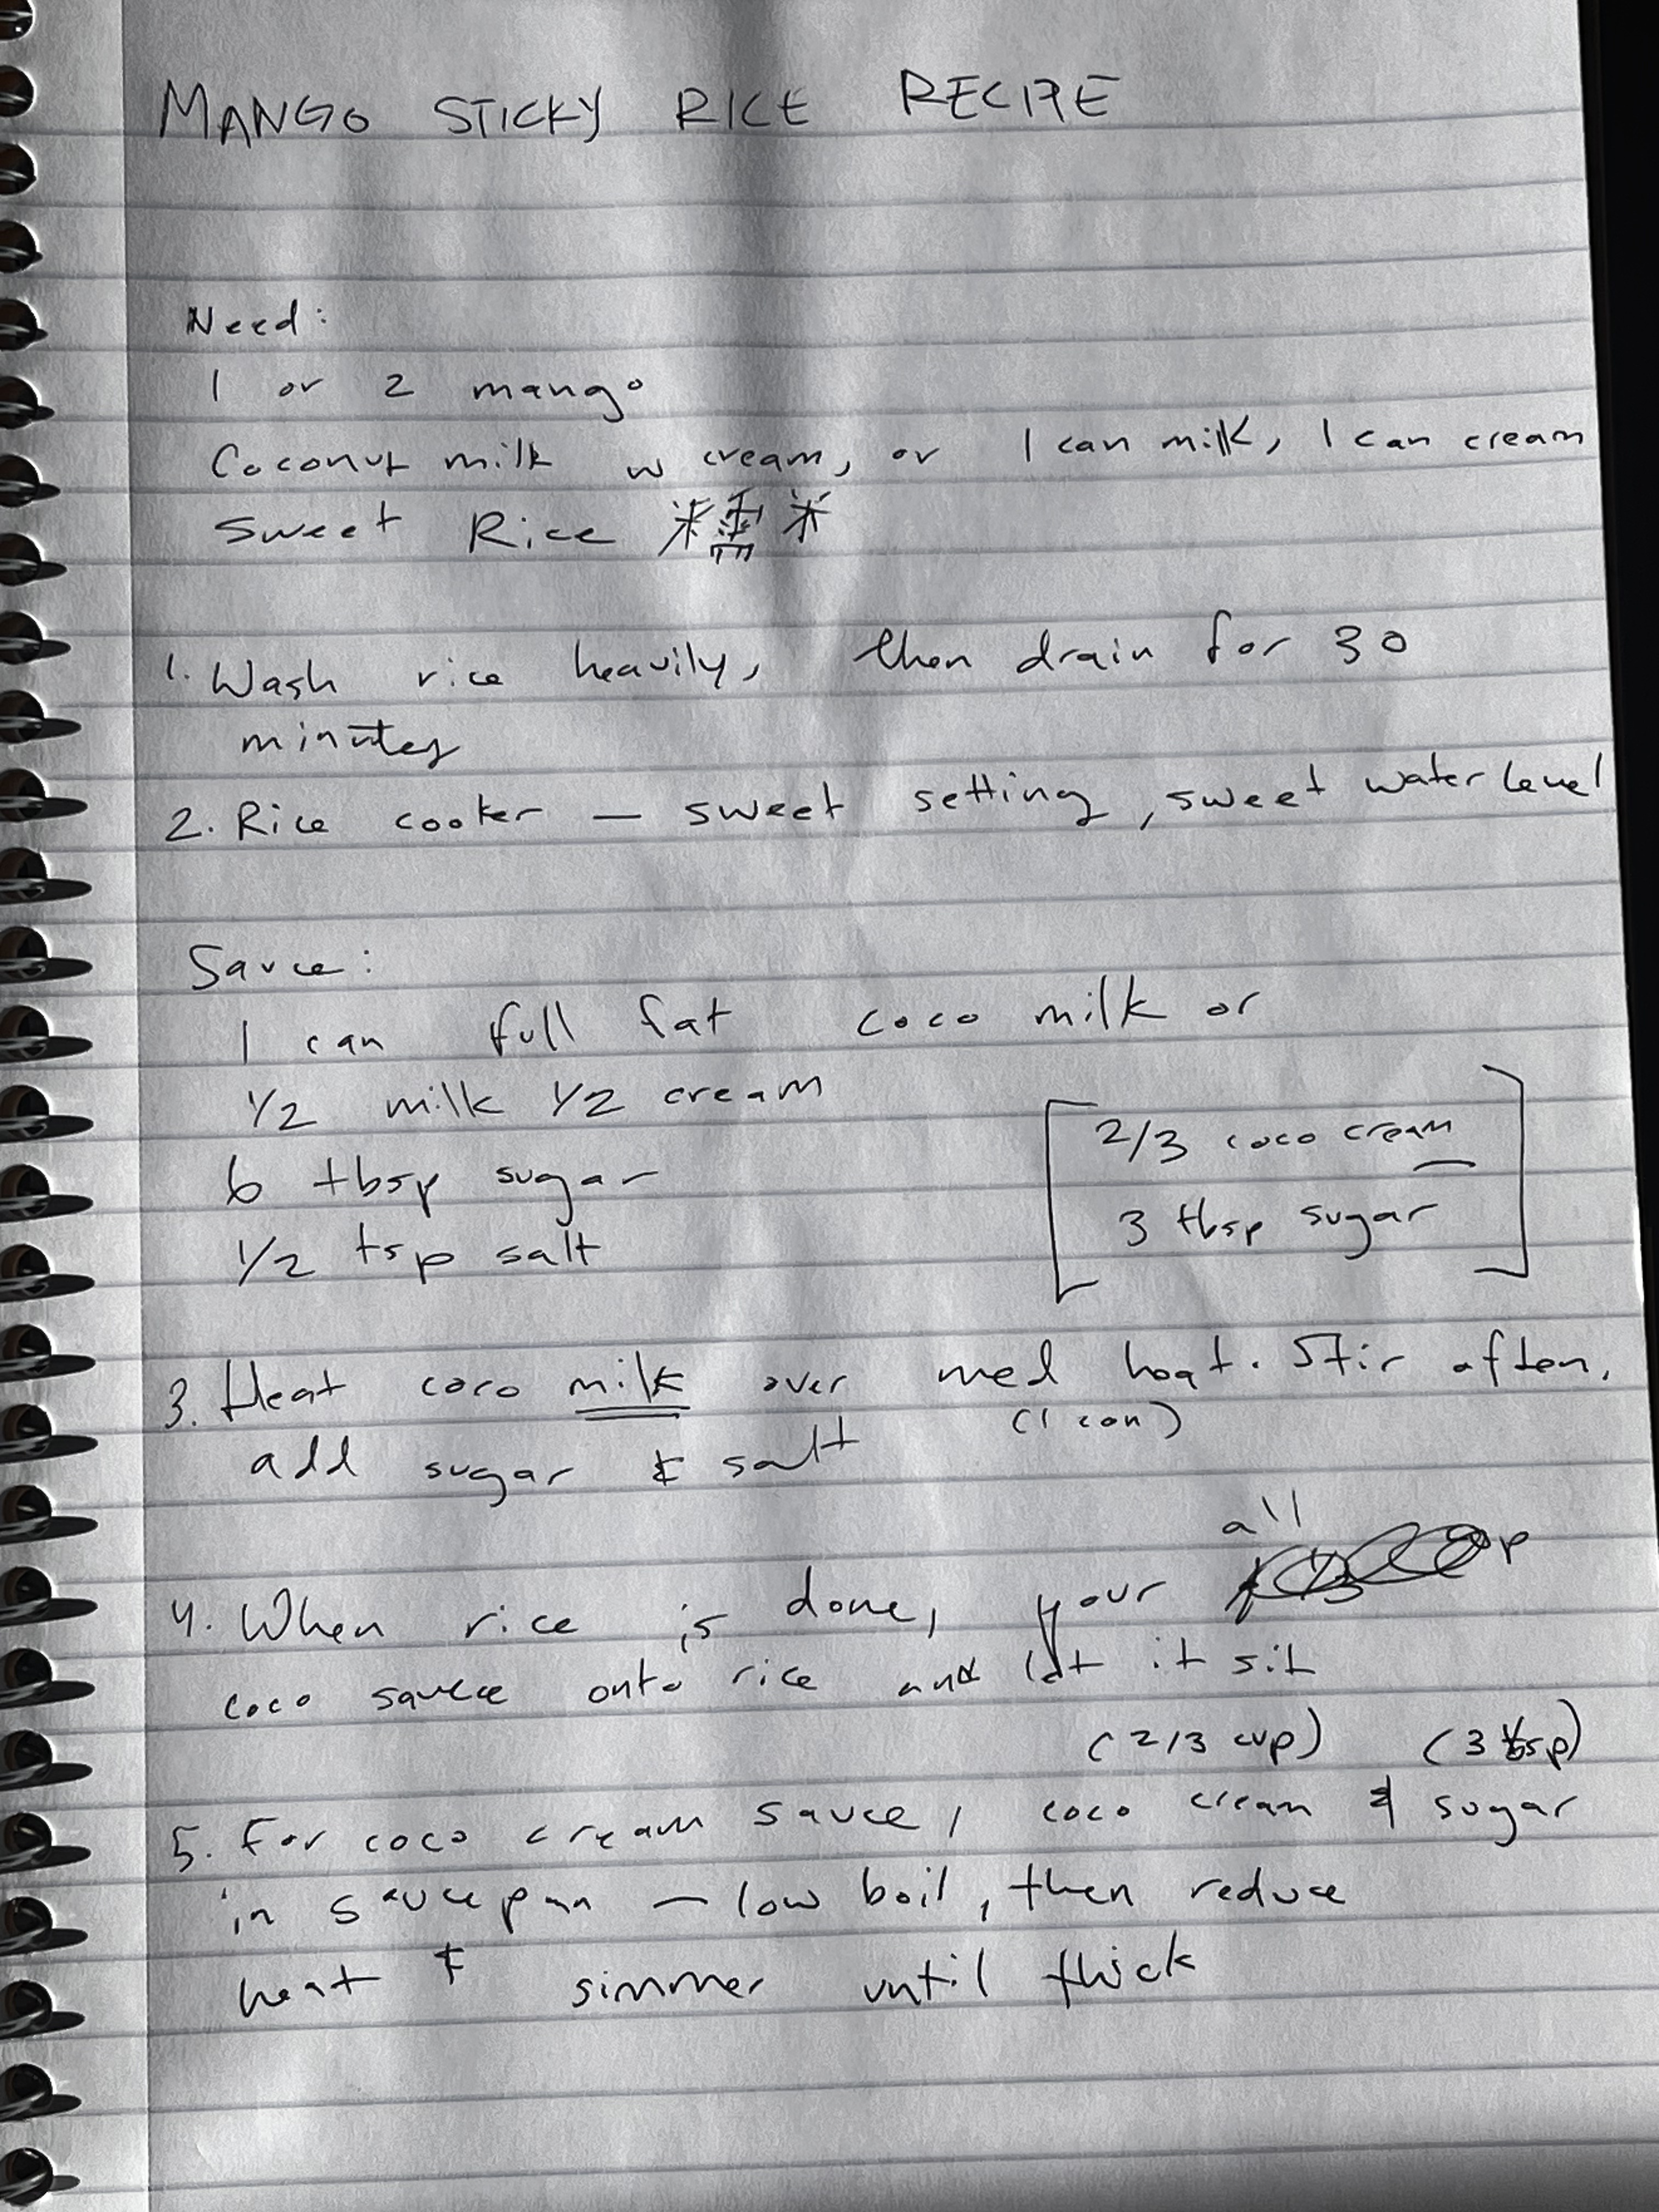 MANGO STICKY RICE RECIPE
Need:
1 or 2 mango
Coconut milk w cream, or 1 can milk, 1 can cream
Sweet Rice 米
1. Wash rice heavily, then drain for 30
minutes
2. Rice cooker — sweet setting, sweet water level
Sauce:
1 can full fat coco milk or
1/2 milk 1/2 cream
6 tbsp sugar
1/2 tsp salt
2/3 coco cream
3 tbsp sugar
3. Heat coco milk over med heat. Stir often.
(1 can)
add sugar & salt
all
4. When rice is done, pour
coco sauce onto rice and let it sit
(2/3 cup) (3 tbsp)
5. For coco cream sauce, coco cream & sugar
in saucepan — low boil, then reduce
heat & simmer until thick